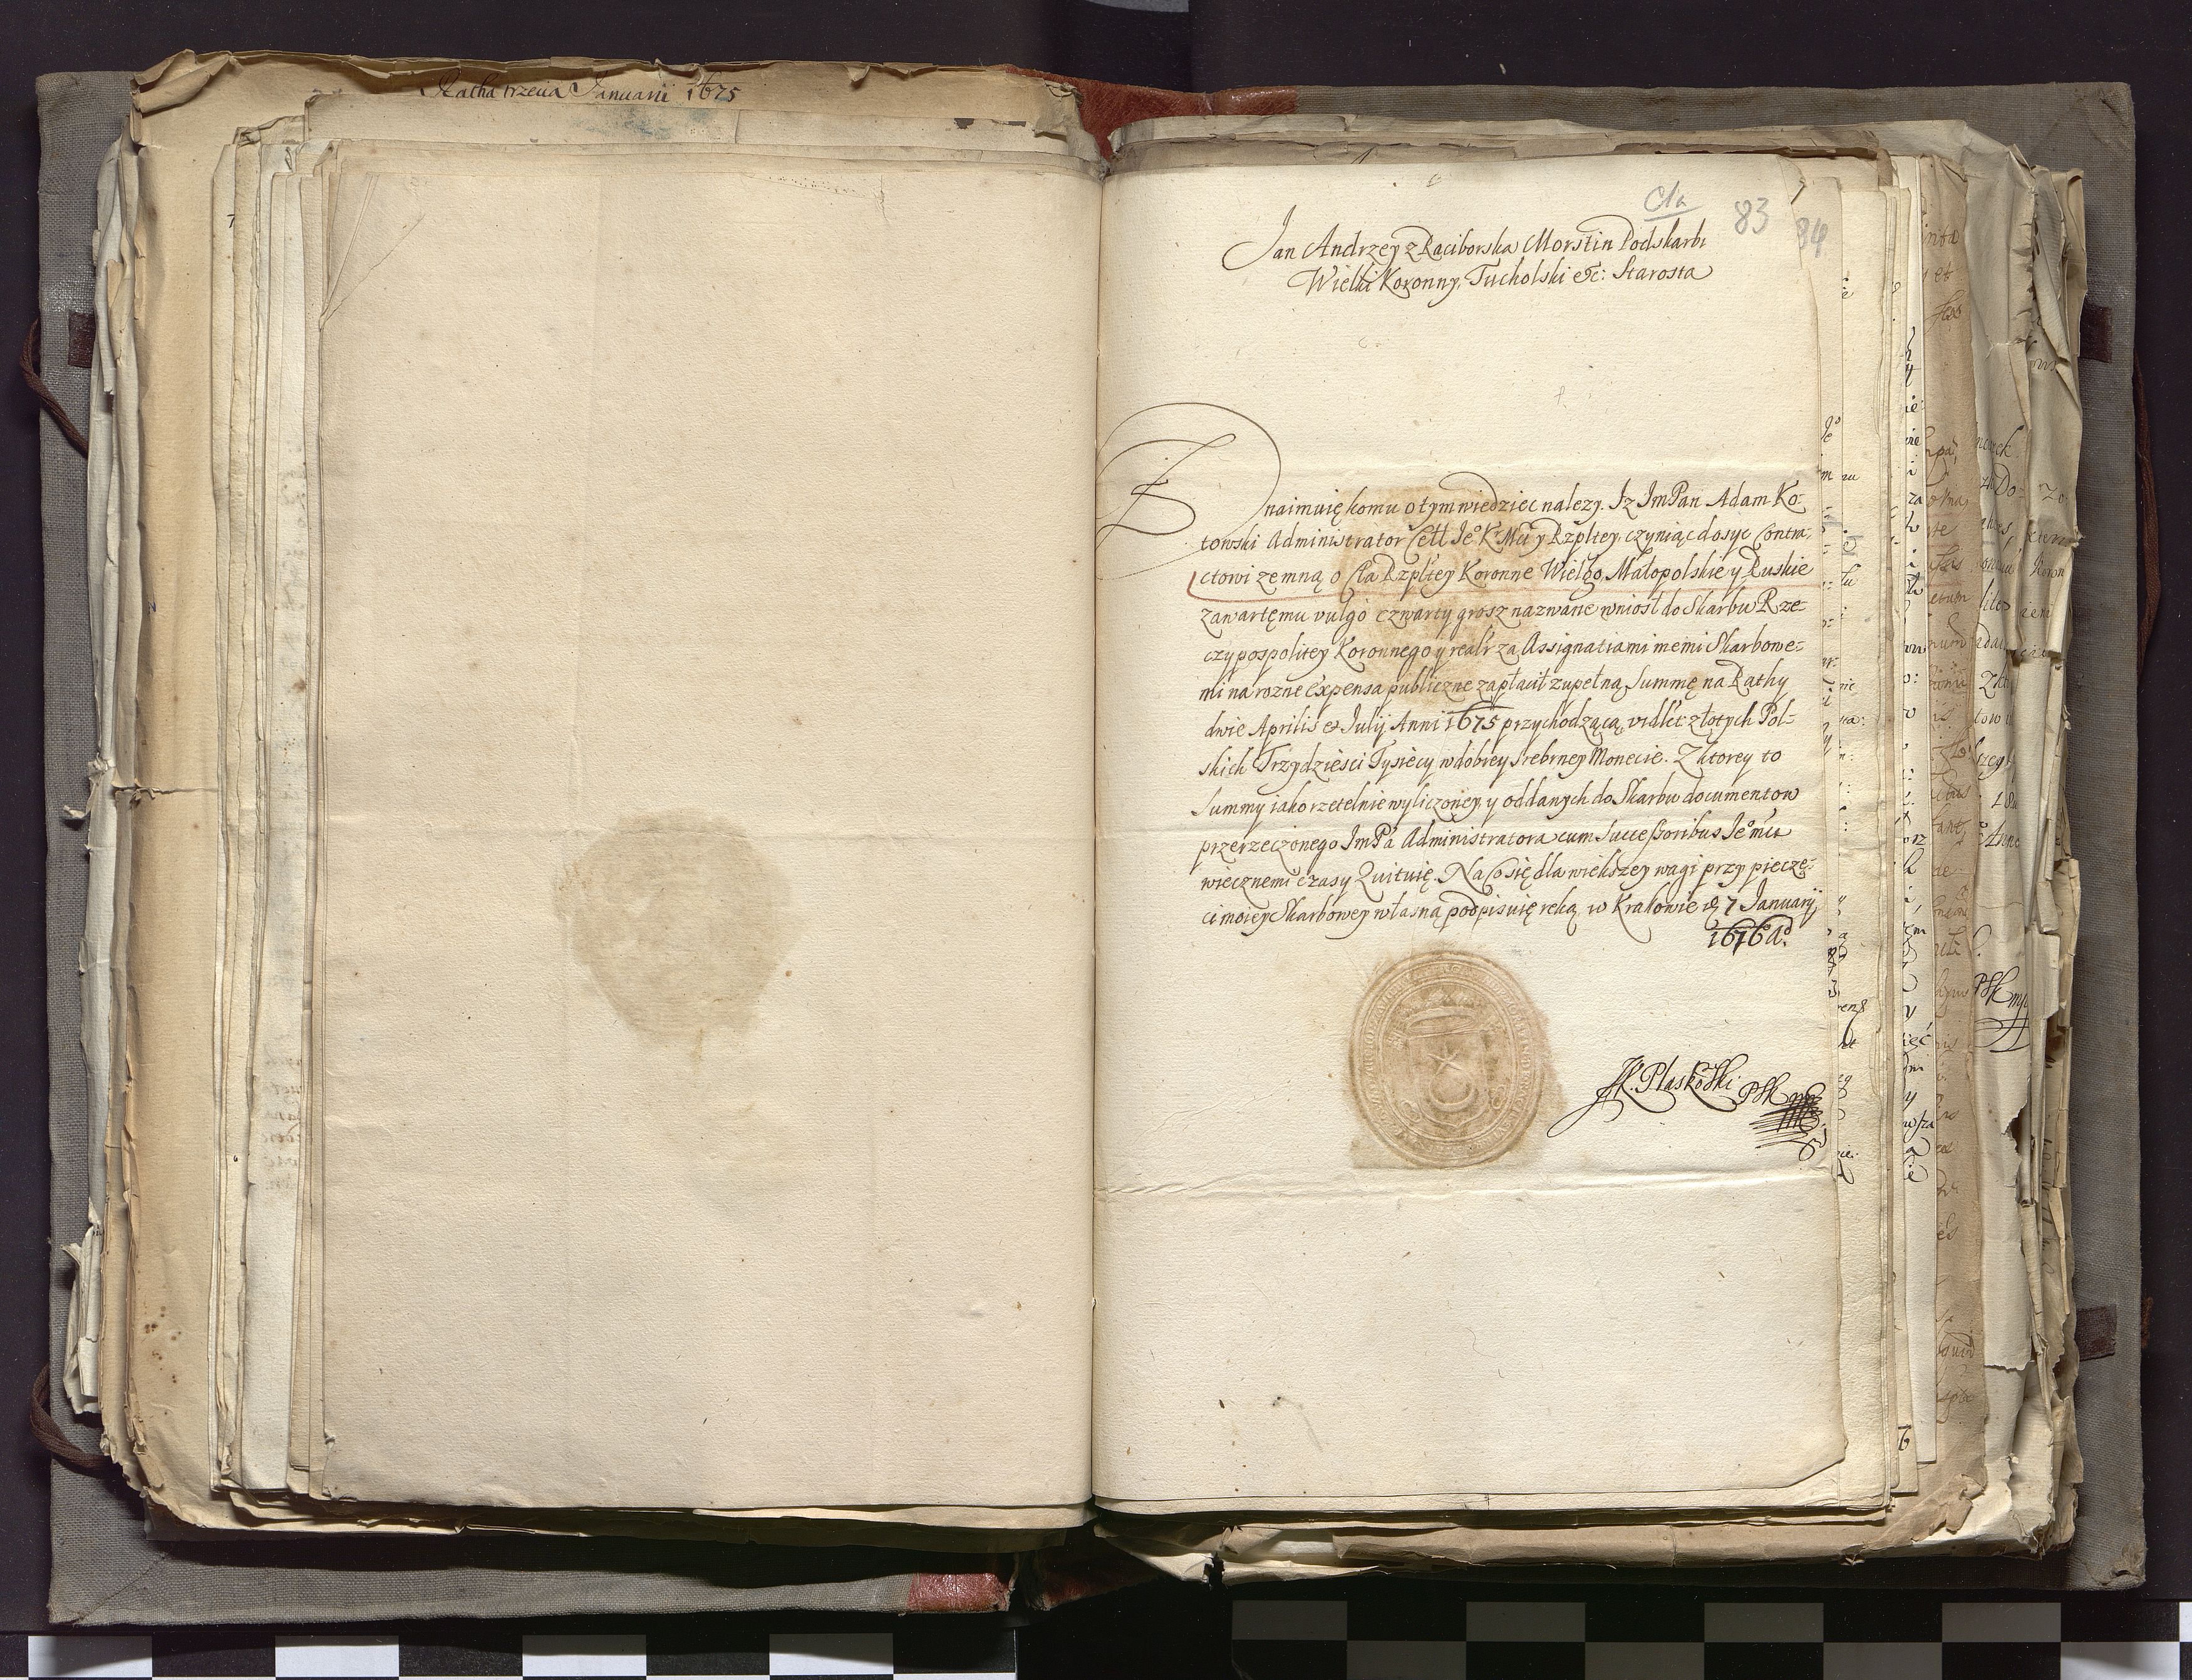 Ratha trzecia Januarii 1675
Cła
83 84
Jan Andrzey z Raciborska Morstin Podskarbi
Wielki Koronny, Tucholski etc: Starosta
Znaimuię komu o tym wiedziec nalezy. Iz ImPan Adam Ko-
towski Administrator Cełł Jeo K Mci y Rzpltey, czyniąc dosyc Contra-
ctowi zemną o Cła Rzpltey Koronne Wielgo, Małopolskie y Ruskie
zawartęmu vulgo czwarty grosz nazwane wniosł do Skarbu Rze-
czypospolitey Koronnego y realr za Assignatiami memi Skarbowe-
mi na rozne expensa publiczne zapłacił zupełną Summę na Rathy
dwie Aprilis et Julij Anni 1675 przychodzącą, vidlt: złotych Pol-
skich Trzydziesci Tysiecy w dobrey Srebrney Monecie. Z ktorey to
Summy iako rzetelnie wyliczoney, y oddanych do Skarbu documentow
przerzeczonego ImPa Administratora cum Successoribus Jeo mci
wiecznemi czasy Quituię. Na Co się dla wiekszey wagi przy pieczę-
ci moiey Skarbowey własną podpisuię ręką, w Krakowie d 7 Januarij
1676 Ao.
Płaskowski PSK mp